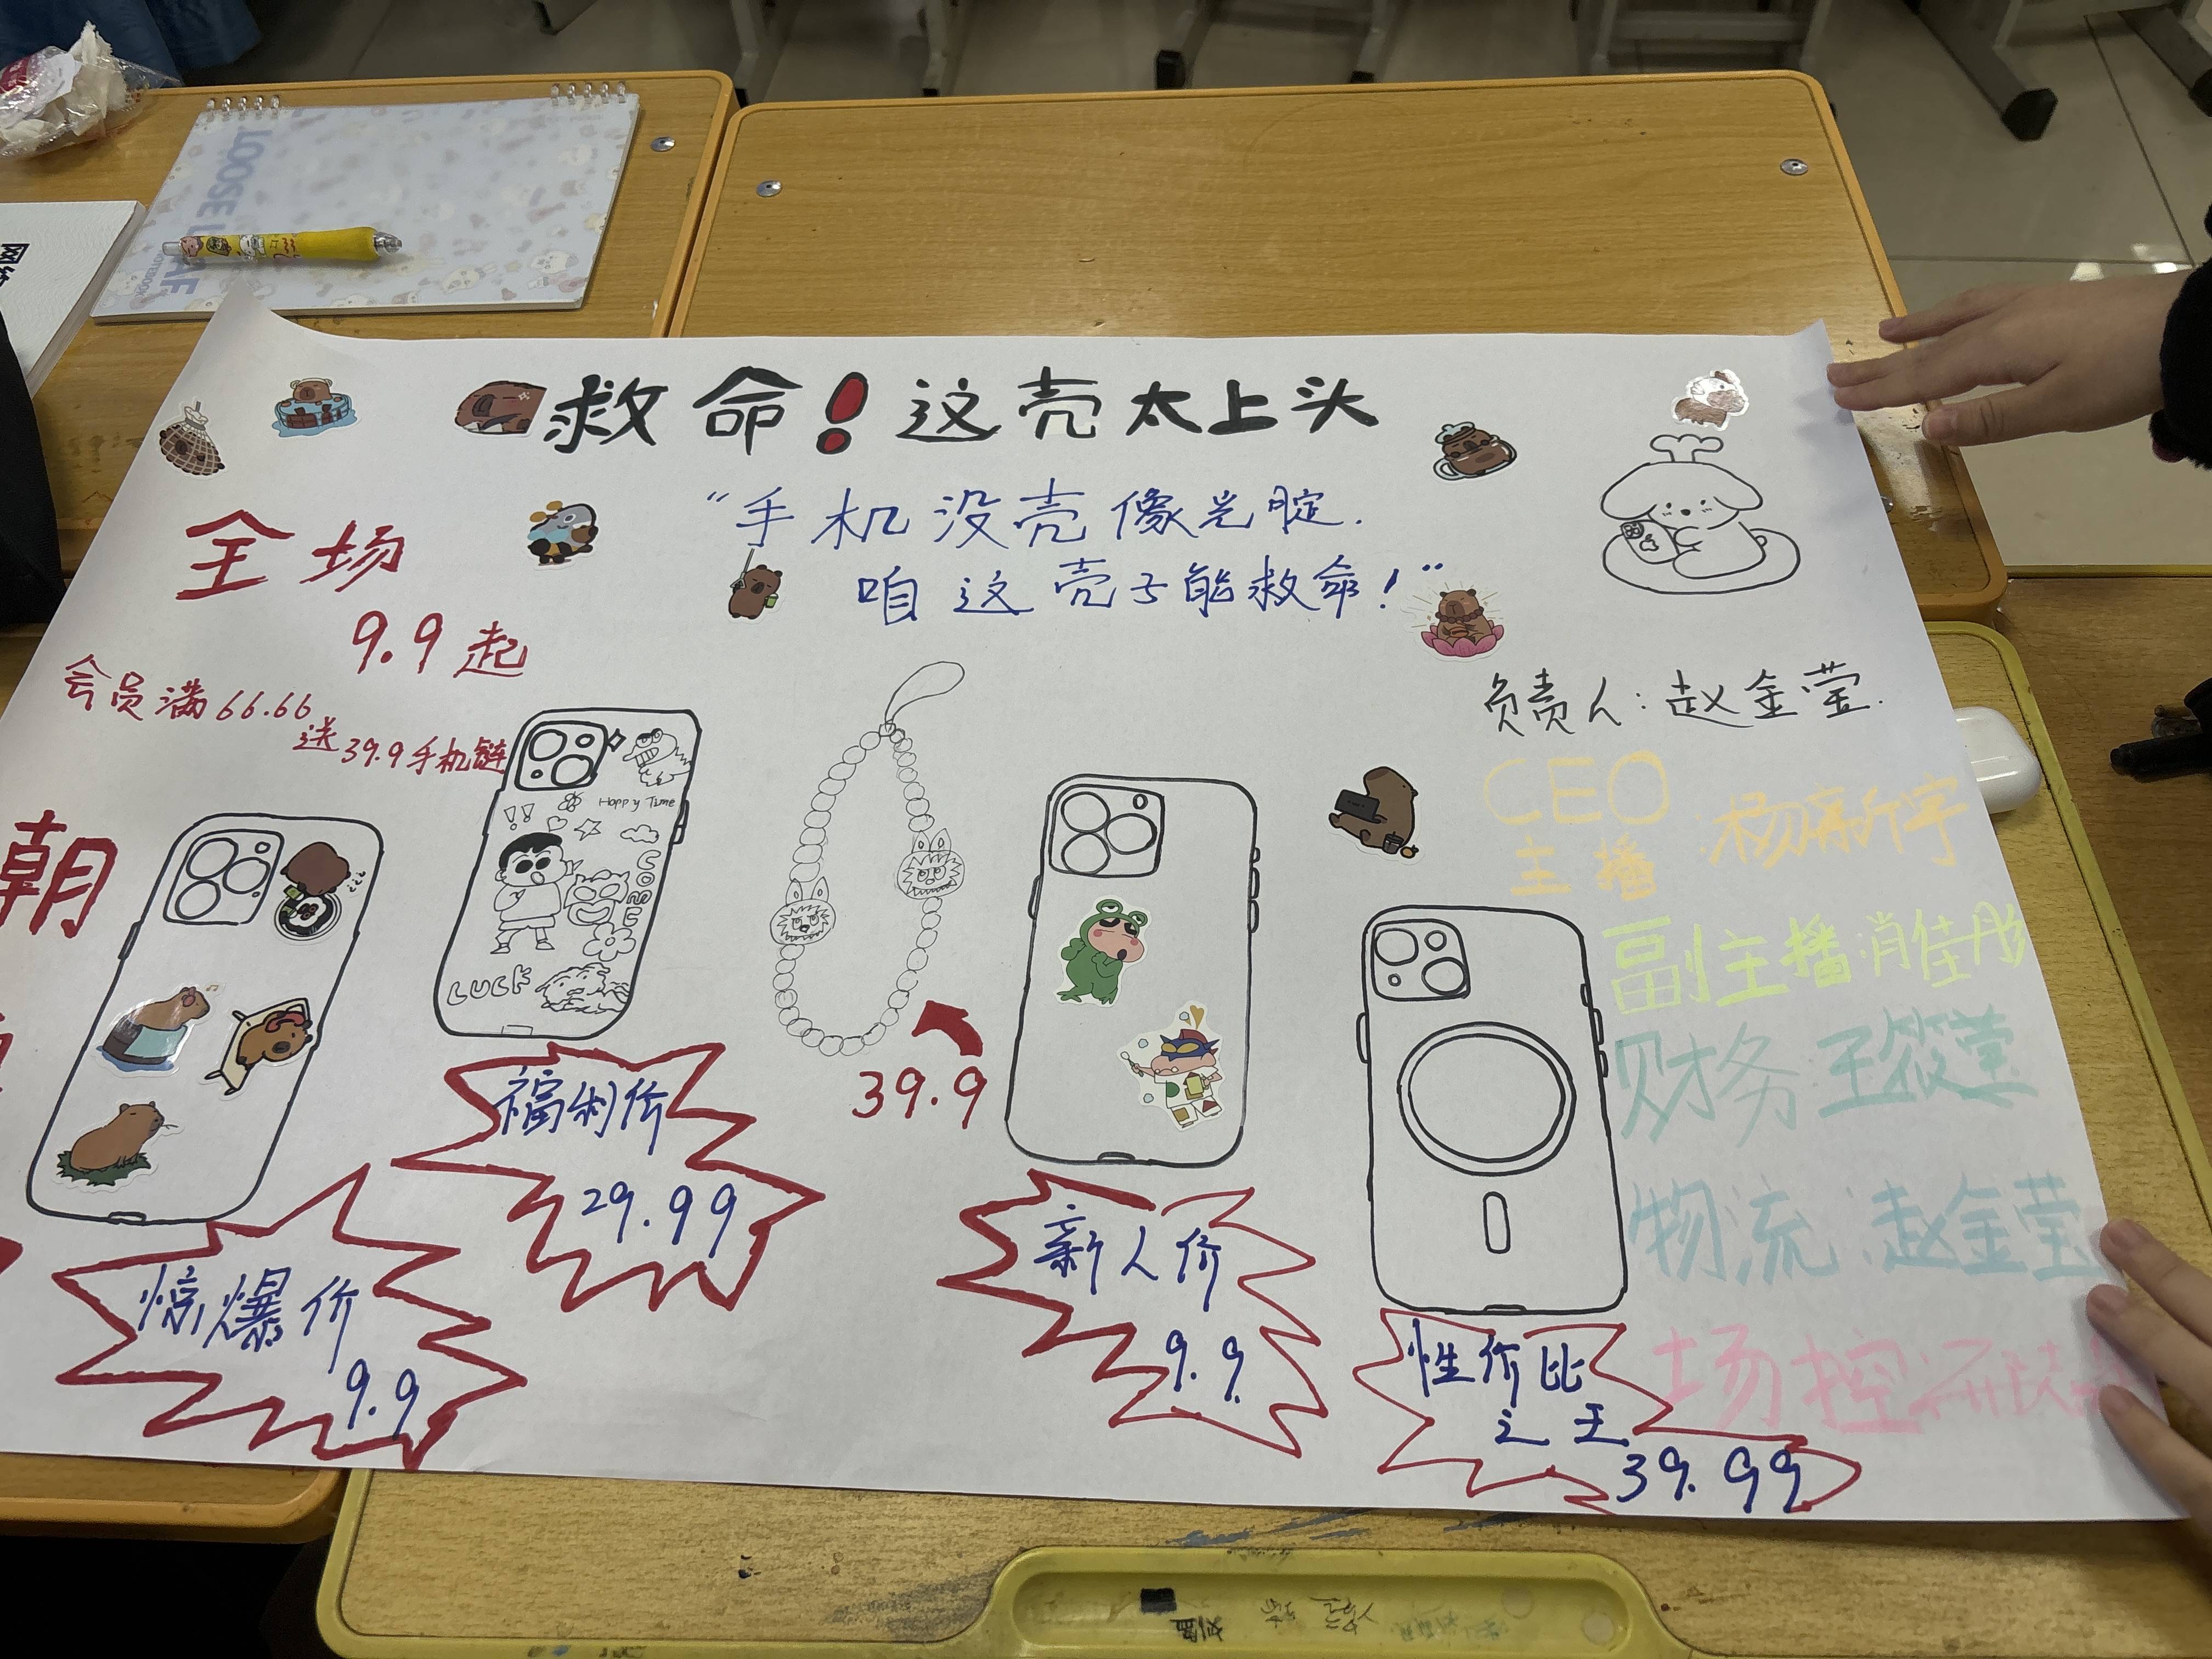 LOOSE LEAF
NOTEBOOK
救命！这壳太上头
“手机没壳像光腚.
咱这壳子能救命！”
全场
9.9起
会员满66.66
送39.9手机链
朝
负责人：赵金莹.
CEO
主播：杨新宇
副主播：肖佳彤
财务 王筱萱
物流：赵金莹
场控：
Happy Time
COME
LUCK
39.9
福利价
29.99
惊爆价
9.9
新人价
9.9.
性价比
之王
39.99